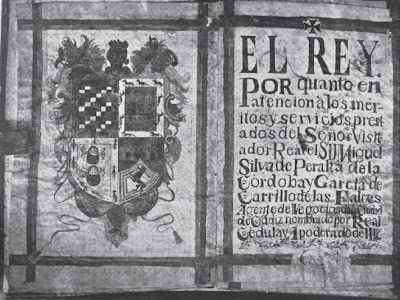 EL REY.
POR quanto en
atencion a los meri-
tos y servicios prest
ados del Señor Visit
ador Real el S.D. Miguel
Silva de Peralta de la
Cordoba y Garcia de
Carrillo de las Falces
Agente de Negocios de la
de Cadiz nombrado por Real
Cedula y Apoderado de